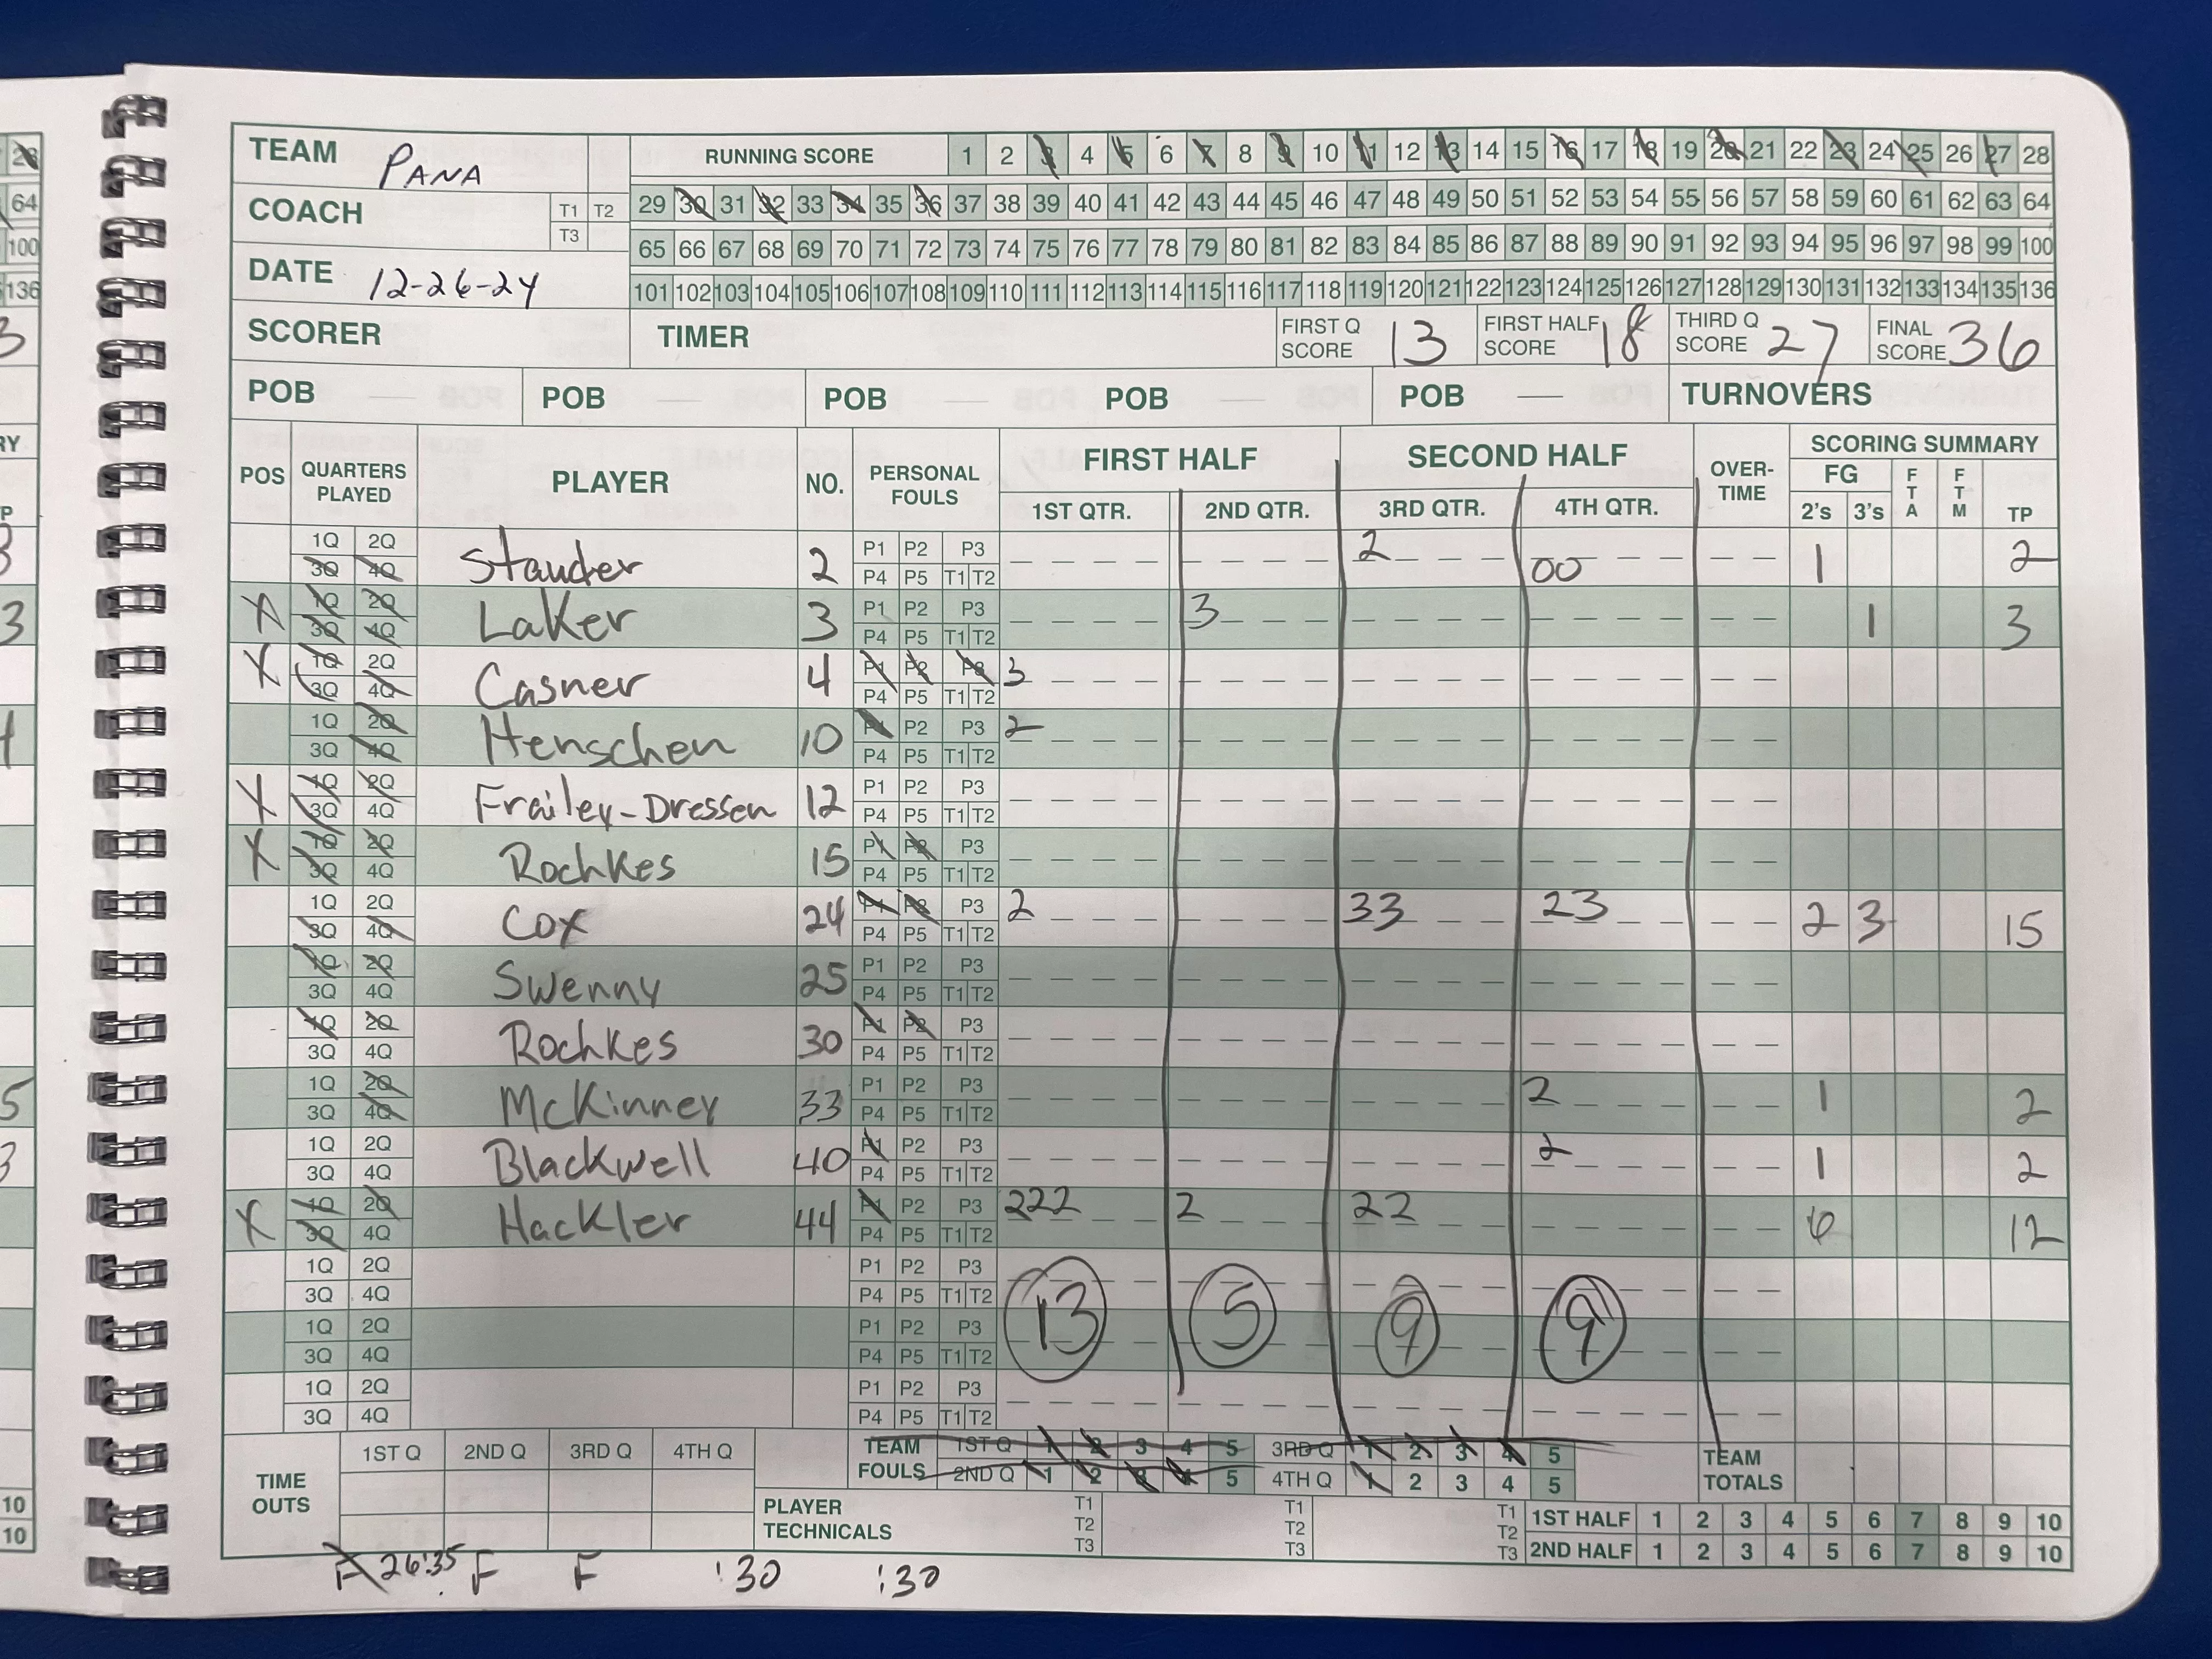 TEAM PANA
RUNNING SCORE 1 2 3 4 5 6 7 8 9 10 11 12 13 14 15 16 17 18 19 20 21 22 23 24 25 26 27 28
COACH T1 T2 T3
29 30 31 32 33 34 35 36 37 38 39 40 41 42 43 44 45 46 47 48 49 50 51 52 53 54 55 56 57 58 59 60 61 62 63 64
65 66 67 68 69 70 71 72 73 74 75 76 77 78 79 80 81 82 83 84 85 86 87 88 89 90 91 92 93 94 95 96 97 98 99 100
DATE 12-26-24
101 102 103 104 105 106 107 108 109 110 111 112 113 114 115 116 117 118 119 120 121 122 123 124 125 126 127 128 129 130 131 132 133 134 135 136
SCORER TIMER FIRST Q SCORE 13 FIRST HALF SCORE 18 THIRD Q SCORE 27 FINAL SCORE 36
POB POB POB POB POB TURNOVERS
POS QUARTERS PLAYED PLAYER NO. PERSONAL FOULS FIRST HALF SECOND HALF OVER-TIME SCORING SUMMARY
1ST QTR. 2ND QTR. 3RD QTR. 4TH QTR. FG 2's 3's FTA FTM TP
1Q 2Q 3Q 4Q Stauder 2 P1 P2 P3 P4 P5 T1 T2 2 00 1 2
X 1Q 2Q 3Q 4Q Laker 3 P1 P2 P3 P4 P5 T1 T2 3 1 3
X 1Q 2Q 3Q 4Q Casner 4 P1 P2 P3 P4 P5 T1 T2 3
1Q 2Q 3Q 4Q Henschen 10 P1 P2 P3 P4 P5 T1 T2 2
X 1Q 2Q 3Q 4Q Frailey-Dressen 12 P1 P2 P3 P4 P5 T1 T2
X 1Q 2Q 3Q 4Q Rochkes 15 P1 P2 P3 P4 P5 T1 T2
1Q 2Q 3Q 4Q Cox 24 P1 P2 P3 P4 P5 T1 T2 2 33 23 2 3 15
1Q 2Q 3Q 4Q Swenny 25 P1 P2 P3 P4 P5 T1 T2
1Q 2Q 3Q 4Q Rochkes 30 P1 P2 P3 P4 P5 T1 T2
1Q 2Q 3Q 4Q McKinney 33 P1 P2 P3 P4 P5 T1 T2 2 1 2
1Q 2Q 3Q 4Q Blackwell 40 P1 P2 P3 P4 P5 T1 T2 2 1 2
X 1Q 2Q 3Q 4Q Hackler 44 P1 P2 P3 P4 P5 T1 T2 222 2 22 6 12
1Q 2Q 3Q 4Q P1 P2 P3 P4 P5 T1 T2
1Q 2Q 3Q 4Q P1 P2 P3 P4 P5 T1 T2 13 5 9 9
1Q 2Q 3Q 4Q P1 P2 P3 P4 P5 T1 T2
TIME OUTS 1ST Q 2ND Q 3RD Q 4TH Q
TEAM FOULS 1ST Q 1 2 3 4 5 3RD Q 1 2 3 4 5 TEAM TOTALS
2ND Q 1 2 3 4 5 4TH Q 1 2 3 4 5
PLAYER TECHNICALS T1 T2 T3 T1 T2 T3 T1 T2 T3
1ST HALF 1 2 3 4 5 6 7 8 9 10
2ND HALF 1 2 3 4 5 6 7 8 9 10
F 26:35 F F :30 :30